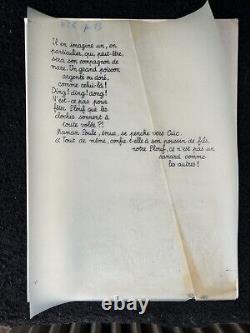 Il en imagine un, en
particulier, qui, peut-être,
sera son compagnon de
mare. Un grand poisson
argenté ou doré,
comme celui-là !
Ding ! ding ! dong !
N'est-ce pas pour
fêter Plouf que les
cloches sonnent à
toute volée ?!
Maman Poule, émue, se penche vers Couic.
« Tout de même, confie-t-elle à son poussin de fils,
notre Plouf, ce n'est pas un
canard comme
les autres !